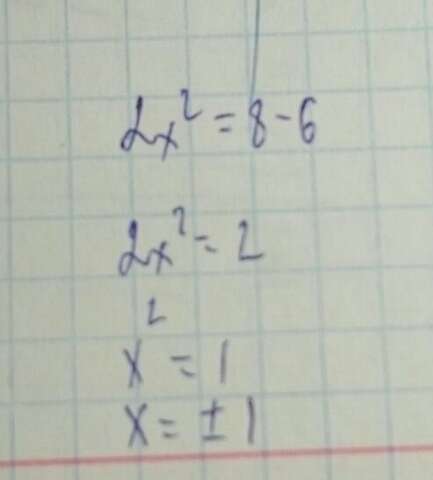 2x² = 8 - 6
2x² = 2
x² = 1
x = ± 1